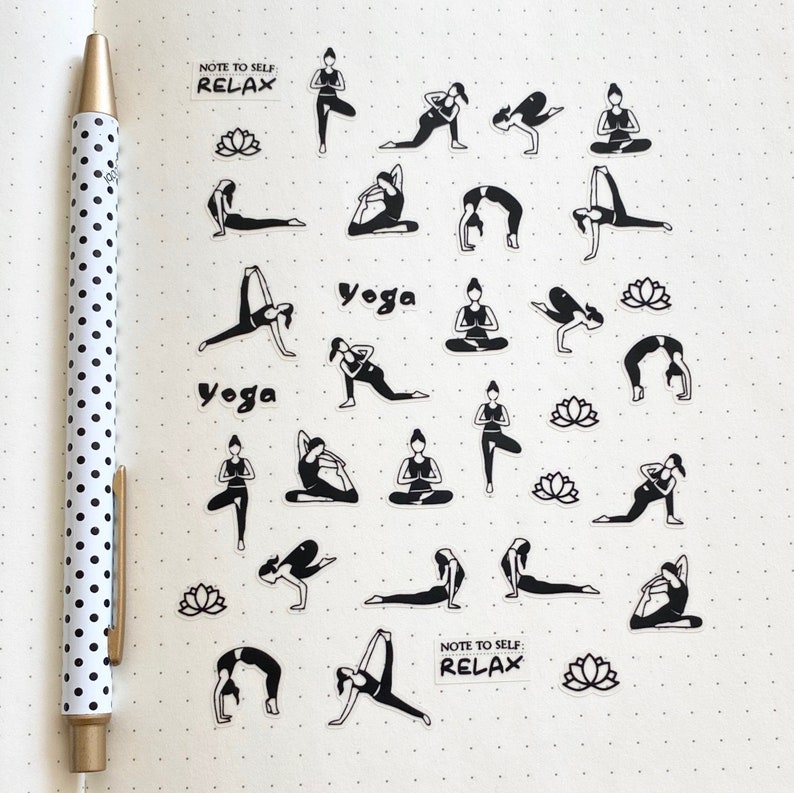 NOTE TO SELF:
RELAX
Yoga
Yoga
NOTE TO SELF:
RELAX